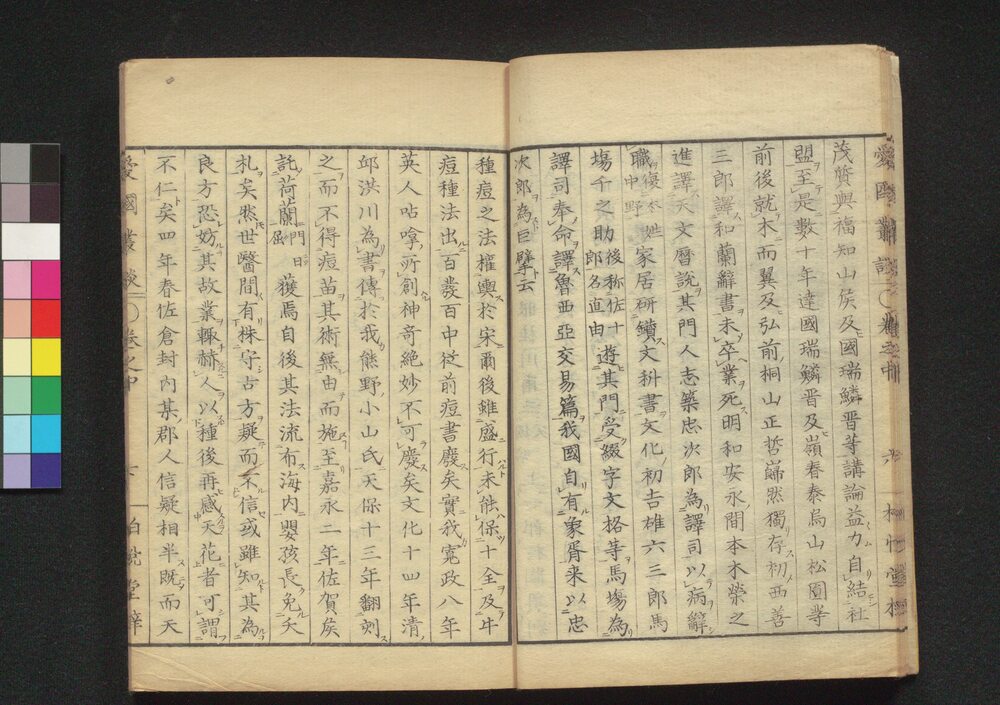 茂質與福知山侯及國瑞鱗晋等講論益力自結社
盟至是數十年達國瑞鱗晋及嶺春泰烏山松圓等
前後就木而翼及弘前桐山正哲巋然獨存初西善
三郎譯和蘭辭書未卒業死明和安永間本木榮之
進譯天文曆說其門人志築忠次郎為譯司以病辭
職復本姓中野家居研鑽文科書文化初吉雄六三郎馬
塲千之助後稱佐十郎名直由遊其門受綴字文格等馬塲為
譯司奉命譯魯西亞交易篇我國自有象胥來以忠
次郎為巨擘云
種痘之法權輿於宋爾後雖盛行未能保十全及牛
痘種法出百發百中從前痘書廢矣實我寬政八年
英人咕嗱所創神奇絕妙不可廢矣文化十四年清
邱洪川為書傳於我熊野小山氏天保十三年翻刻
之而不得痘苗其術無由而施至嘉永二年佐賀侯
託荷蘭獲焉自後其法流布海内嬰孩長免夭
札矣然世醫間有株守古方疑而不信或雖知其為
良方恐妨其故業輙赫人以種後再感天花者可謂
不仁矣四年春佐倉封内某郡人信疑相半既而天
愛國叢談 卷之中